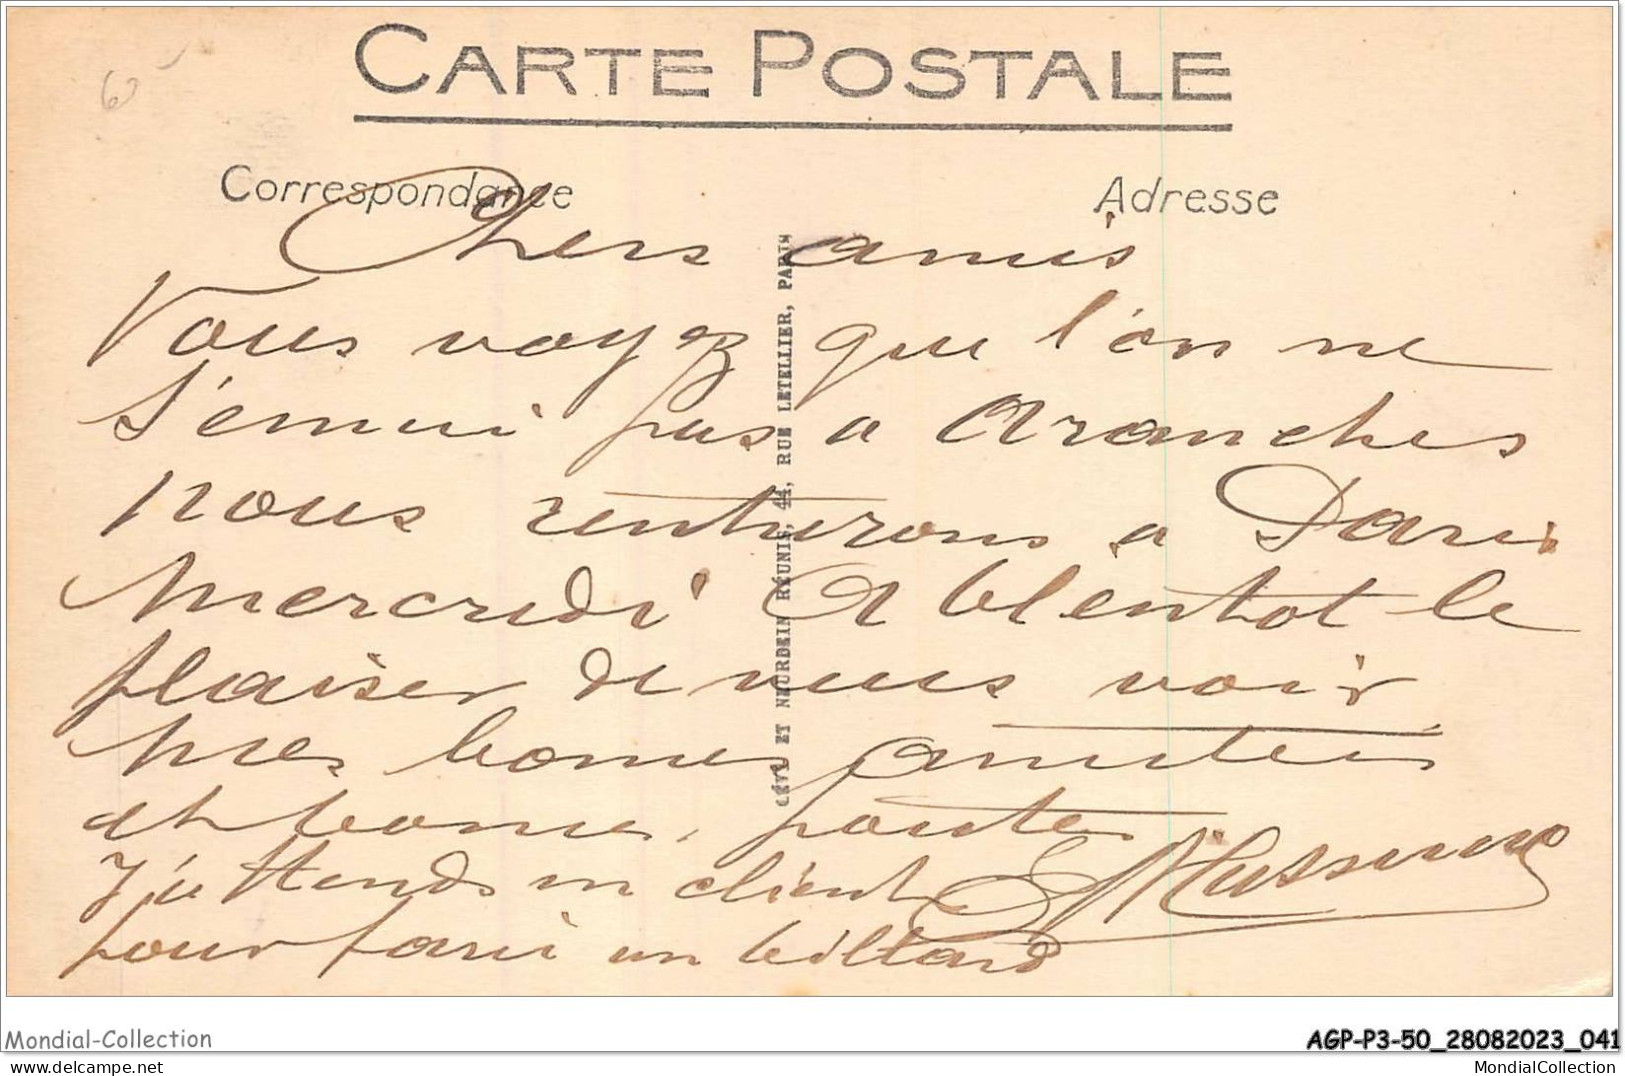 CARTE POSTALE
Correspondance
Adresse
LÉVY ET NEURDEIN RÉUNIS, 44, RUE LETELLIER, PARIS
Chers amis
Vous voyez que l'on ne
s'ennui pas a Avranches
nous renturons a Paris
Mercredi A bientot le
plaiser de vous voir
Mes bonnes amitiés
et bonne santé
J'attends un client
pour faire un billard
Mondial-Collection
AGP-P3-50_28082023_041
MondialCollection
MondialCollection